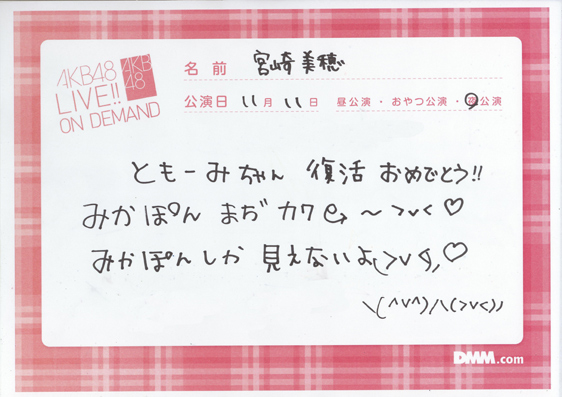 AKB48
LIVE!!
ON DEMAND
AKB
48
名前 宮崎美穂
公演日 11月11日 昼公演・おやつ公演・夜公演
ともーみちゃん 復活 おめでとう!!
みかぽん まぢ カワe 〜 >v< ♡
みかぽんしか 見えないよ(>v<)♡
\(^v^)/\(>v<))
DMM.com